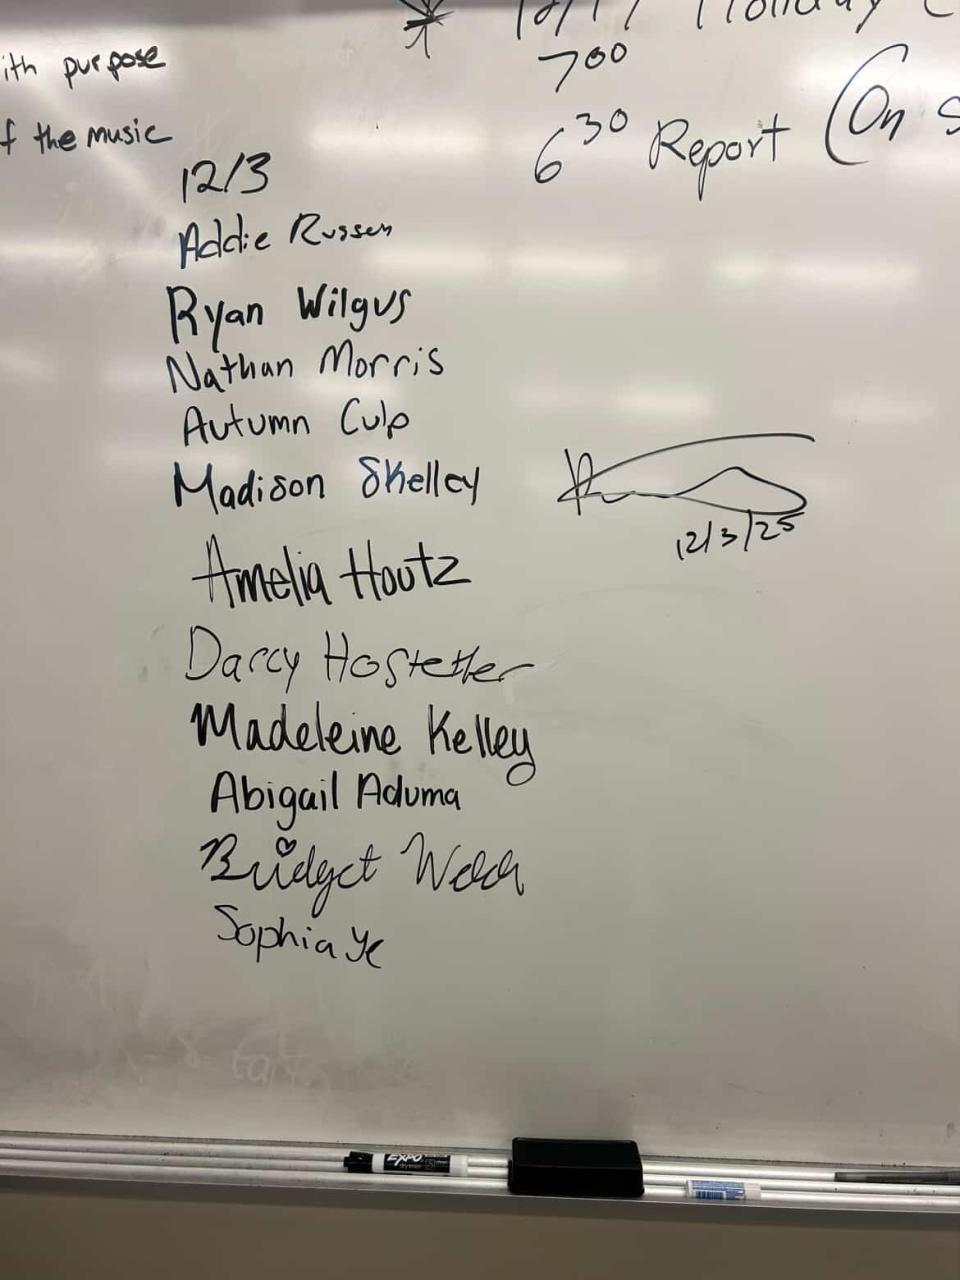 12/17 Holiday
7 00
6 30 Report (On S
ith purpose
f the music
12/3
Addie Russen
Ryan Wilgus
Nathan Morris
Autumn Culp
Madison Skelley
12/3/25
Amelia Houtz
Darcy Hostetler
Madeleine Kelley
Abigail Aduma
Bridget Welch
Sophia Ye
EXPO